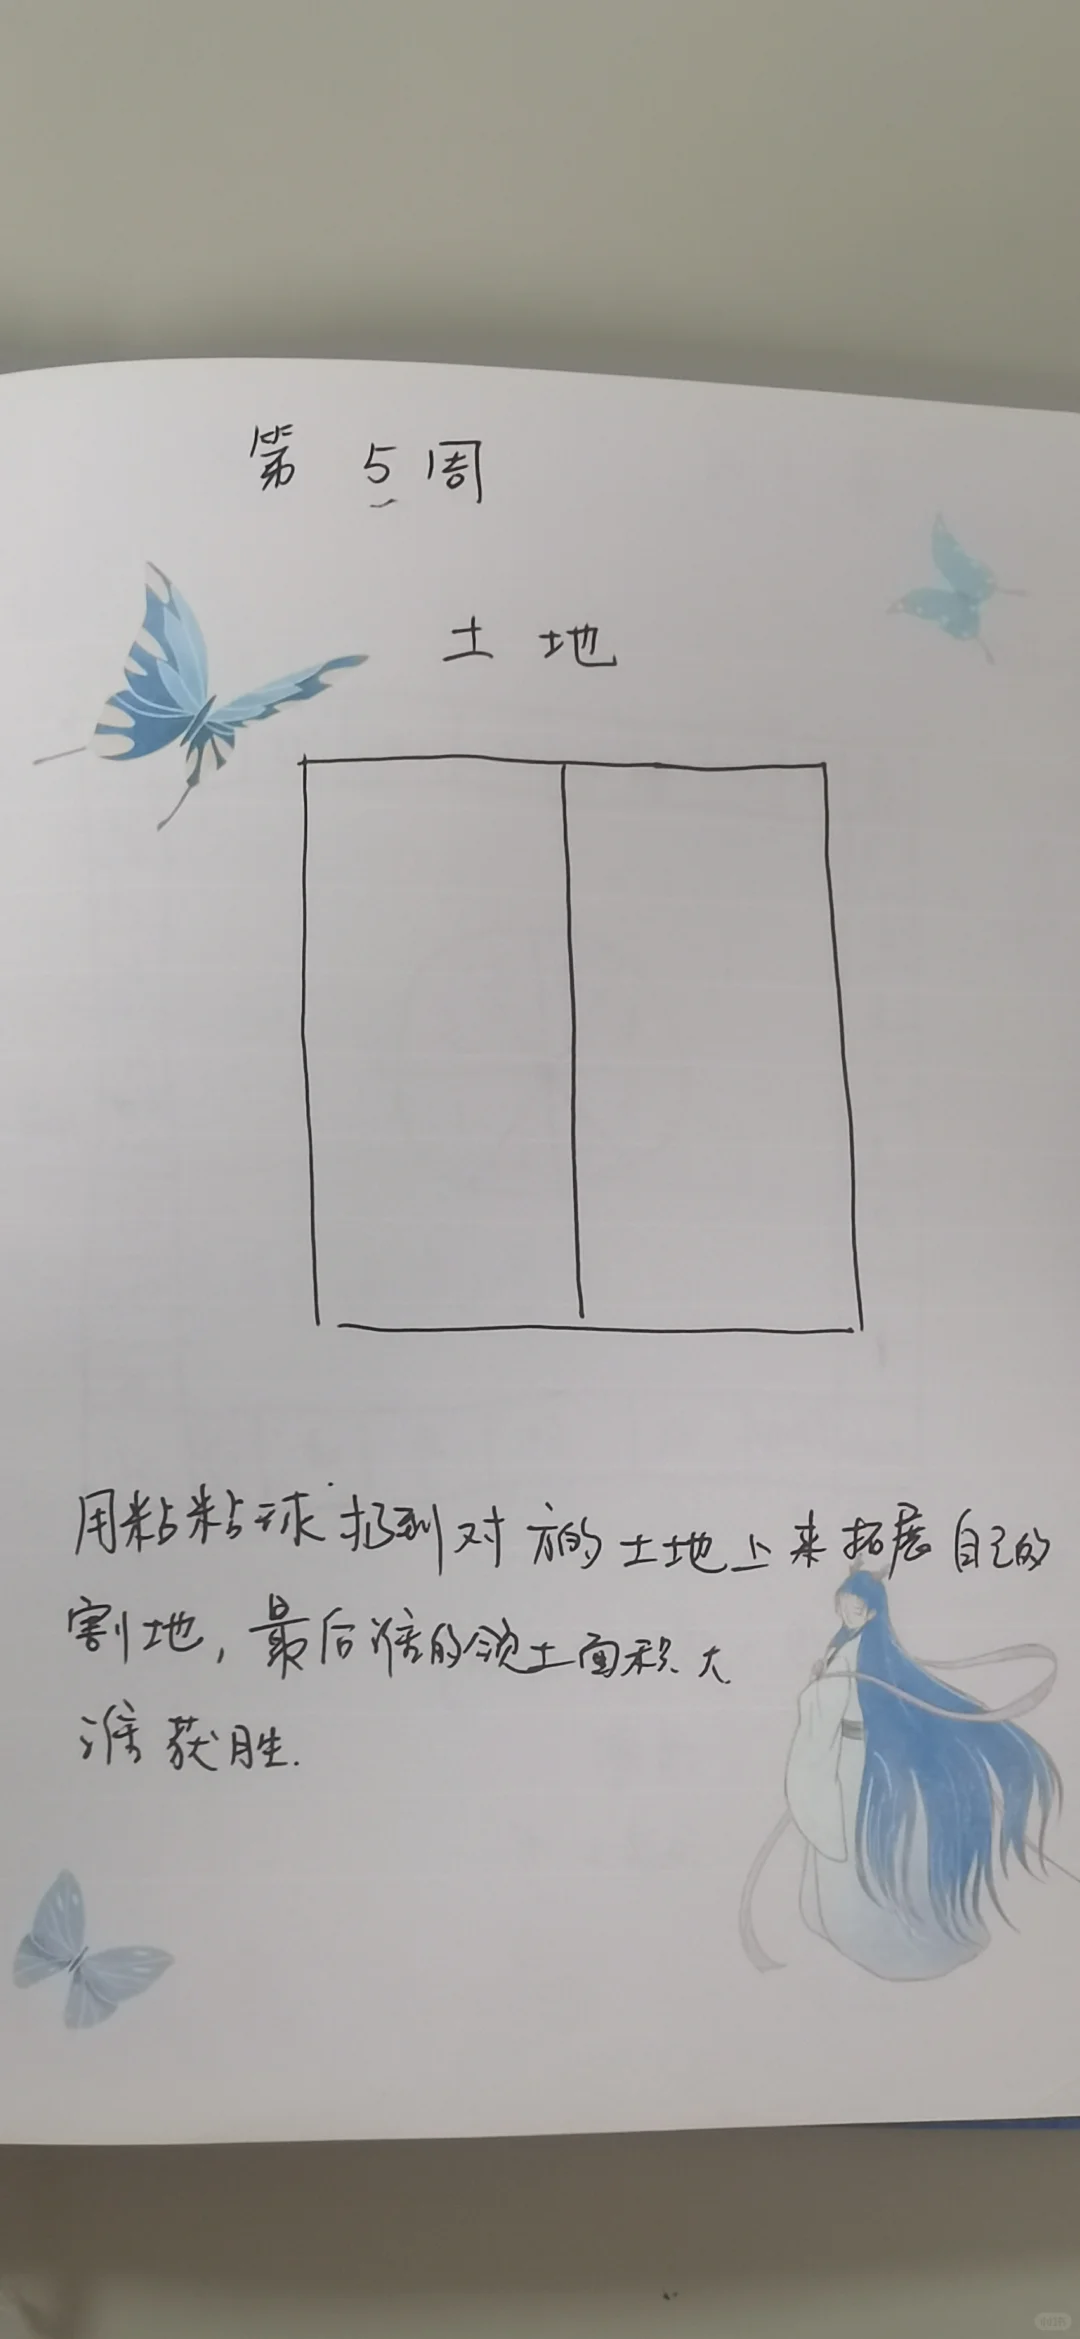 第 5 周
土 地
用粘粘球扔到对方的土地上来拓展自己的
割地，最后谁的领土面积大
谁获胜.